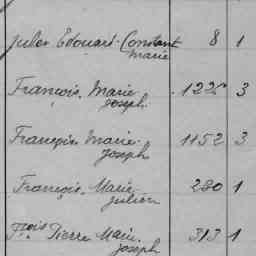 Jules Edouard-Constant 8 1
Marie
François Marie 1225 3
Joseph
François Marie 1152 3
Joseph
François Marie 280 1
Julien
Fçois Pierre Marie 313 1
Joseph